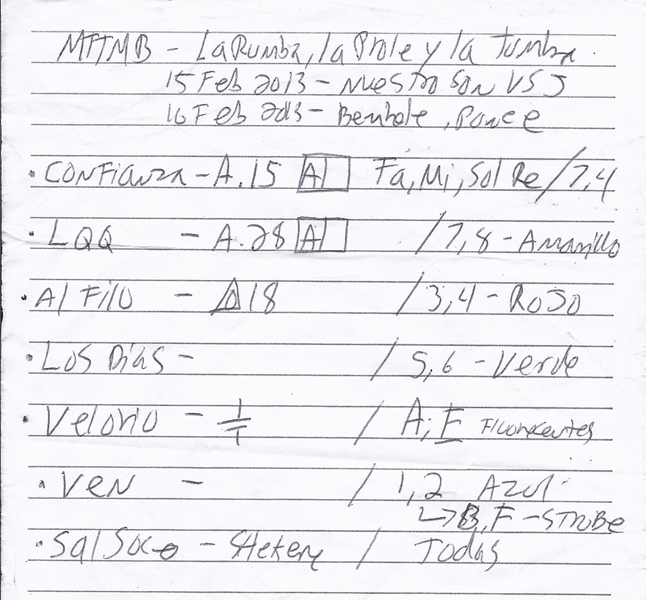 MTTMB - La Rumba, la Prole y la tumba
15 Feb 2013 - Nuestro Son VSJ
16 Feb 2013 - , Ponce
• Confianza - A.15 A Fa, Mi, Sol Re / 7,4
• LQQ - A.28 A / 7,8 - Amarillo
• Al Filo - 18 / 3,4 - Rojo
• Los Días - / 5,6 - Verde
• Velorio - 1/1 / A, E
• Ven - / 1,2 Azul
↳ B, F - Strobe
• Sal Soco - / Todas